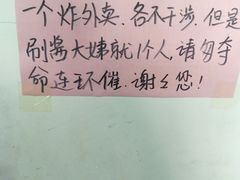 一个炸外卖.各不干涉.但是
刷酱大妈就1个人,请勿夺
命连环催.谢々您!